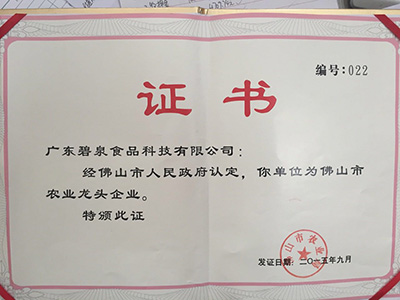 编号:022
证书
广东碧泉食品科技有限公司:
经佛山市人民政府认定,你单位为佛山市
农业龙头企业。
特颁此证
发证日期:二〇一五年九月